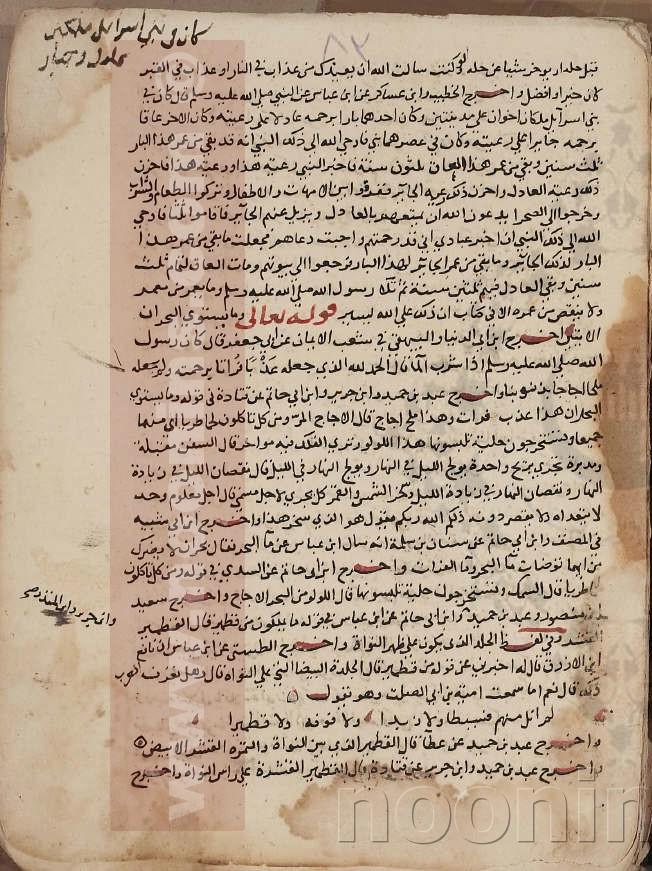 كان في بني اسرائيل ملكين
عادل وجبار
٨٣
قبل حله او يؤخر شيا عن حله ولو كنت سالت الله ان يعيذك من عذاب في النار او عذاب في القبر
كان خيرا وافضل واخرج الخطيب وابن عساكر عن ابن عباس عن النبي صلى الله عليه وسلم قال كان في
بني اسرايل ملكان اخوان على مدينتين وكان احدهما بارا برحمه عادلا على رعيته وكان الاخر عاقا
برحمه جايرا على رعيته وكان في عصرهما نبي فاوحى الله الى ذلك النبي انه قد بقي من عمر هذا البار
ثلث سنين وبقي من عمر هذا العاق ثلثون سنة فاخبر النبي رعية هذا ورعية هذا فاحزن
ذلك رعية العادل واحزن ذلك رعية الجاير ففرقوا بين الامهات والاطفال وتركوا الطعام والشراب
وخرجوا الى الصحرا يدعون الله ان يمتعهم بالعادل ويزيل عنهم الجاير فاقاموا ثلثا فاوحى
الله الى ذلك النبي ان اخبر عبادي اني قد رحمتهم واجبت دعاهم فجعلت ما بقي من عمر هذا
البار لذلك الجاير وما بقي من عمر الجاير لهذا البار فرجعوا الى بيوتهم ومات العاق لتمام ثلث
سنين وبقي العادل فيهم ثلثين سنة ثم تلا رسول الله صلى الله عليه وسلم وما يعمر من معمر
ولا ينقص من عمره الا في كتاب ان ذلك على الله يسير قوله تعالى وما يستوي البحران
الاية اخرج ابن ابي الدنيا والبيهقي في شعب الايمان عن ابي جعفر قال كان رسول
الله صلى الله عليه وسلم اذا شرب الما قال الحمد لله الذي جعله عذبا فراتا برحمته ولم يجعله
ملحا اجاجا بذنوبنا واخرج عبد بن حميد وابن جرير وابن ابي حاتم عن قتادة في قوله وما يستوي
البحران هذا عذب فرات وهذا ملح اجاج قال الاجاج المر ومن كل تاكلون لحما طريا اي منهما
جميعا وتستخرجون حلية تلبسونها هذا اللولو وترى الفلك فيه مواخر قال السفن مقبلة
ومدبرة تجري بريح واحدة يولج الليل في النهار ويولج النهار في الليل قال نقصان الليل في زيادة
النهار ونقصان النهار في زيادة الليل وسخر الشمس والقمر كل يجري لاجل مسمى قال اجل معلوم وحد
لا يتعداه ولا يقصر دونه ذلكم الله ربكم يقول هو الذي سخر هذا واخرج ابن ابي شيبة
في المصنف وابن ابي حاتم عن سنان بن سلمة انه سال ابن عباس عن ما البحر فقال بحران لا يضرك
من ايهما توضات ما البحر وما الفرات واخرج ابن ابي حاتم عن السدي في قوله ومن كل تاكلون
لحما طريا قال السمك وتستخرجون حلية تلبسونها قال اللولو من البحر الاجاج واخرج سعيد
بن منصور وعبد بن حميد وابن ابي حاتم عن ابن عباس في قوله ما يملكون من قطمير قال القطمير
القشر وفي لفظ الجلد الذي يكون على ظهر النواة واخرج الطستي عن ابن عباس ان نافع
ابن الازرق قال له اخبرني عن قوله من قطمير قال الجلدة البيضا التي على النواه قال وهل تعرف العرب
ذلك قال نعم اما سمعت امية بن ابي الصلت وهو يقول
لم انل منهم فسيطا ولا زبدا ولا فوفه ولا قطميرا
واخرج عبد بن حميد عن عطا قال القطمير الذي بين النواة والتمره القشر الابيض
واخرج عبد بن حميد وابن جرير عن قتادة قال القطمير القشرة على راس النواة واخرج
وابن جرير وابن المنذر صح
noonin